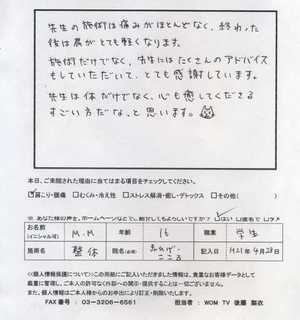 先生の施術は痛みがほとんどなく、終わった
後は肩がとても軽くなります。
施術だけでなく、先生にはたくさんのアドバイス
もしていただいて、とても感謝しています。
先生は体だけでなく、心も癒してくださる
すごい方だな、と思います。
本日、ご来院された理由に当てはまる項目をチェックしてください。
☑肩こり・腰痛 □むくみ・冷え性 □ストレス解消・癒し・デトックス □その他( )
※ あなた様の声を、ホームページなどでご紹介してもよろしいですか?
お名前 (イニシャル可) M.M 年齢 16 職業 学生
施術名 整体 院名(必須) こころ 記入日 H21年4月28日
<<個人情報保護について>>この用紙にご記入いただきました情報は、貴重なお客様データとして
厳重に管理し、ご本人の許可なく外部への開示・提供することは一切ございません。
また、個人情報はご本人様からのお申出により訂正・削除いたします。
FAX番号 : 03-3206-6561 担当者 : WOM TV 後藤 梨衣